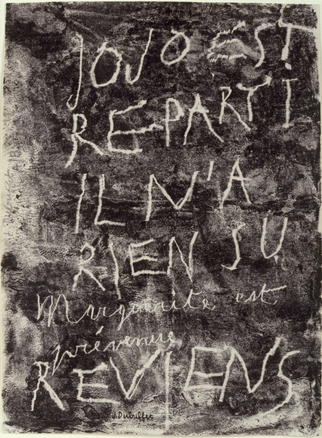 JOJO EST
REPARTI
IL N'A
RIEN SU
Marguerite est
prévenue
REVIENS
J. Dubuffet